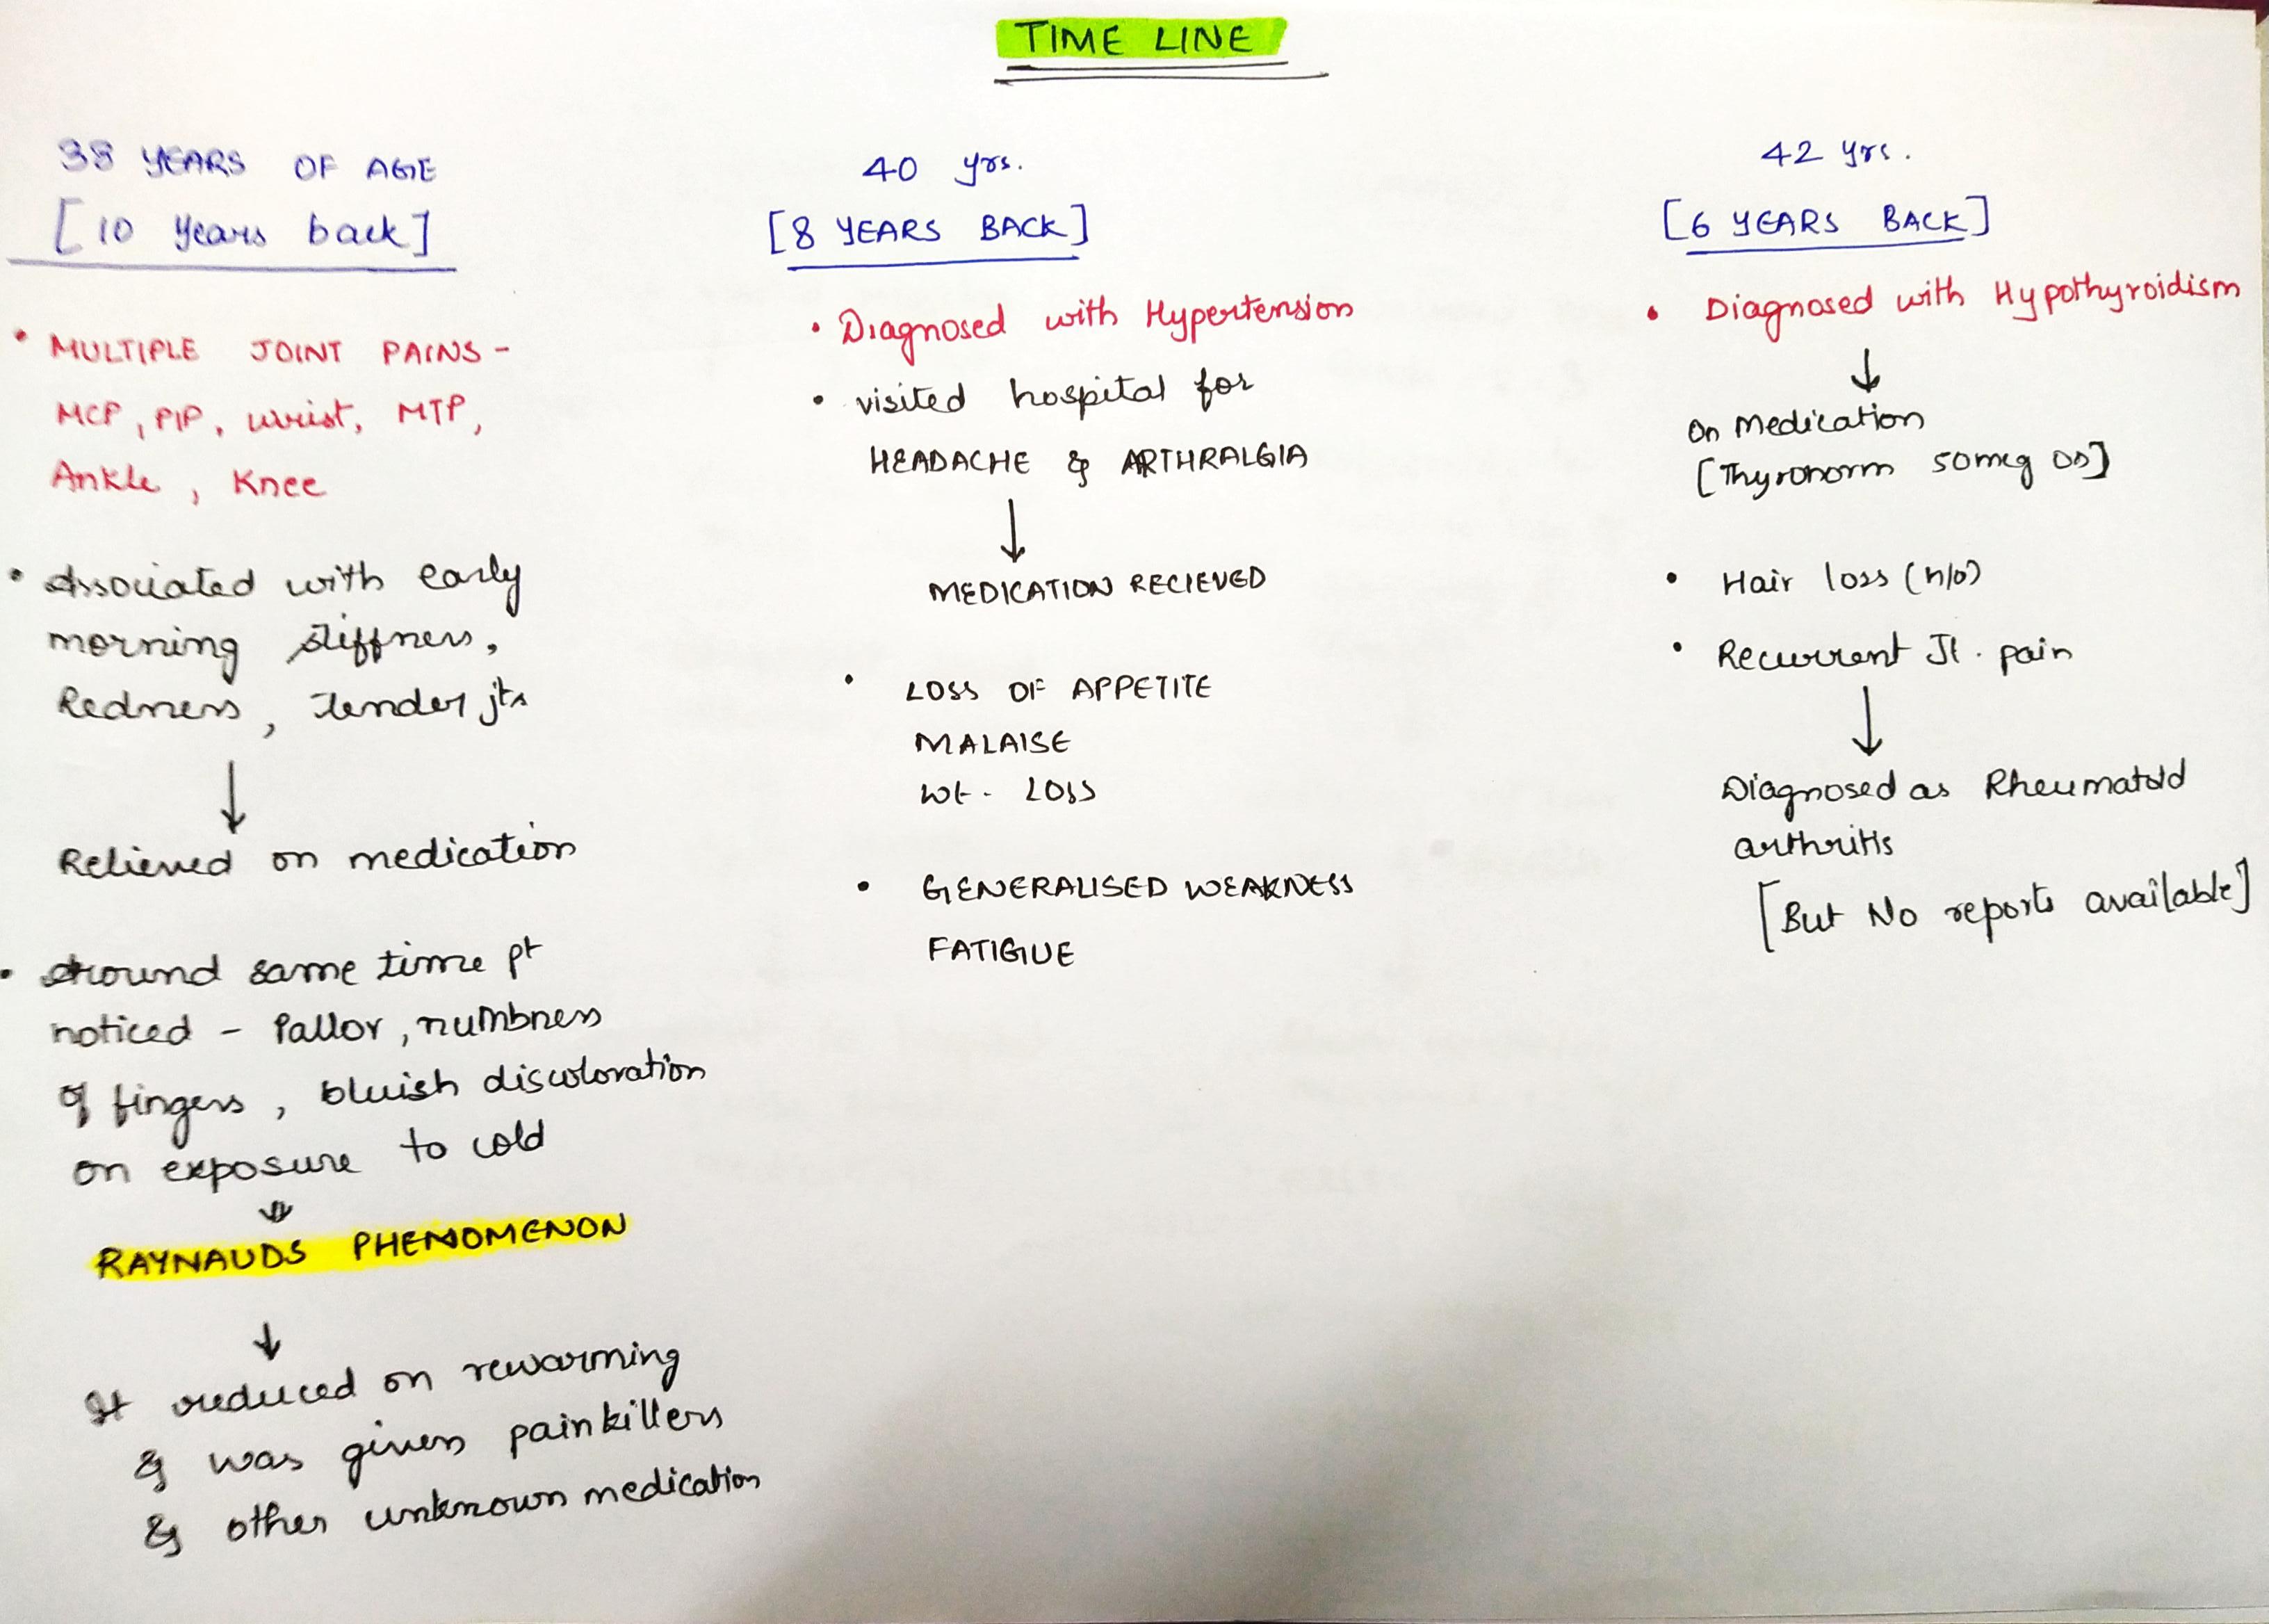 TIME LINE
38 YEARS OF AGE
[10 Years back]
• MULTIPLE JOINT PAINS -
MCP, PIP, wrist, MTP,
Ankle, Knee
• Associated with early
morning stiffness,
Redness, tender jts
↓
Relieved on medication
• Around same time pt
noticed - Pallor, numbness
of fingers, bluish discoloration
on exposure to cold
⇓
RAYNAUDS PHENOMENON
↓
It reduced on rewarming
& was given painkillers
& other unknown medication
40 yrs.
[8 YEARS BACK]
• Diagnosed with Hypertension
• visited hospital for
HEADACHE & ARTHRALGIA
↓
MEDICATION RECIEVED
• LOSS OF APPETITE
MALAISE
Wt. LOSS
• GENERALISED WEAKNESS
FATIGUE
42 yrs.
[6 YEARS BACK]
• Diagnosed with Hypothyroidism
↓
On Medication
[Thyronorm 50mcg OD]
• Hair loss (h/o)
• Recurrent Jt. pain
↓
Diagnosed as Rheumatoid
arthritis
[But No reports available]